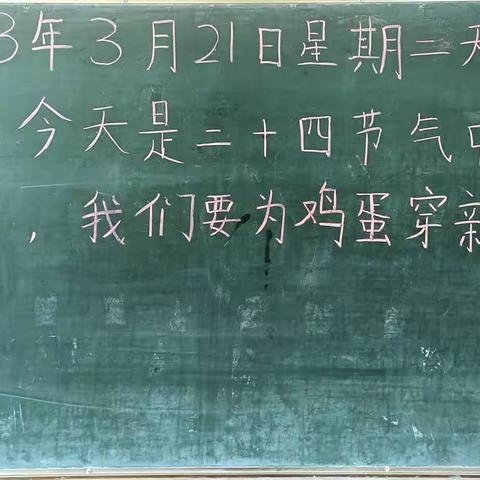 3年3月21日星期二天
今天是二十四节气中
，我们要为鸡蛋穿新